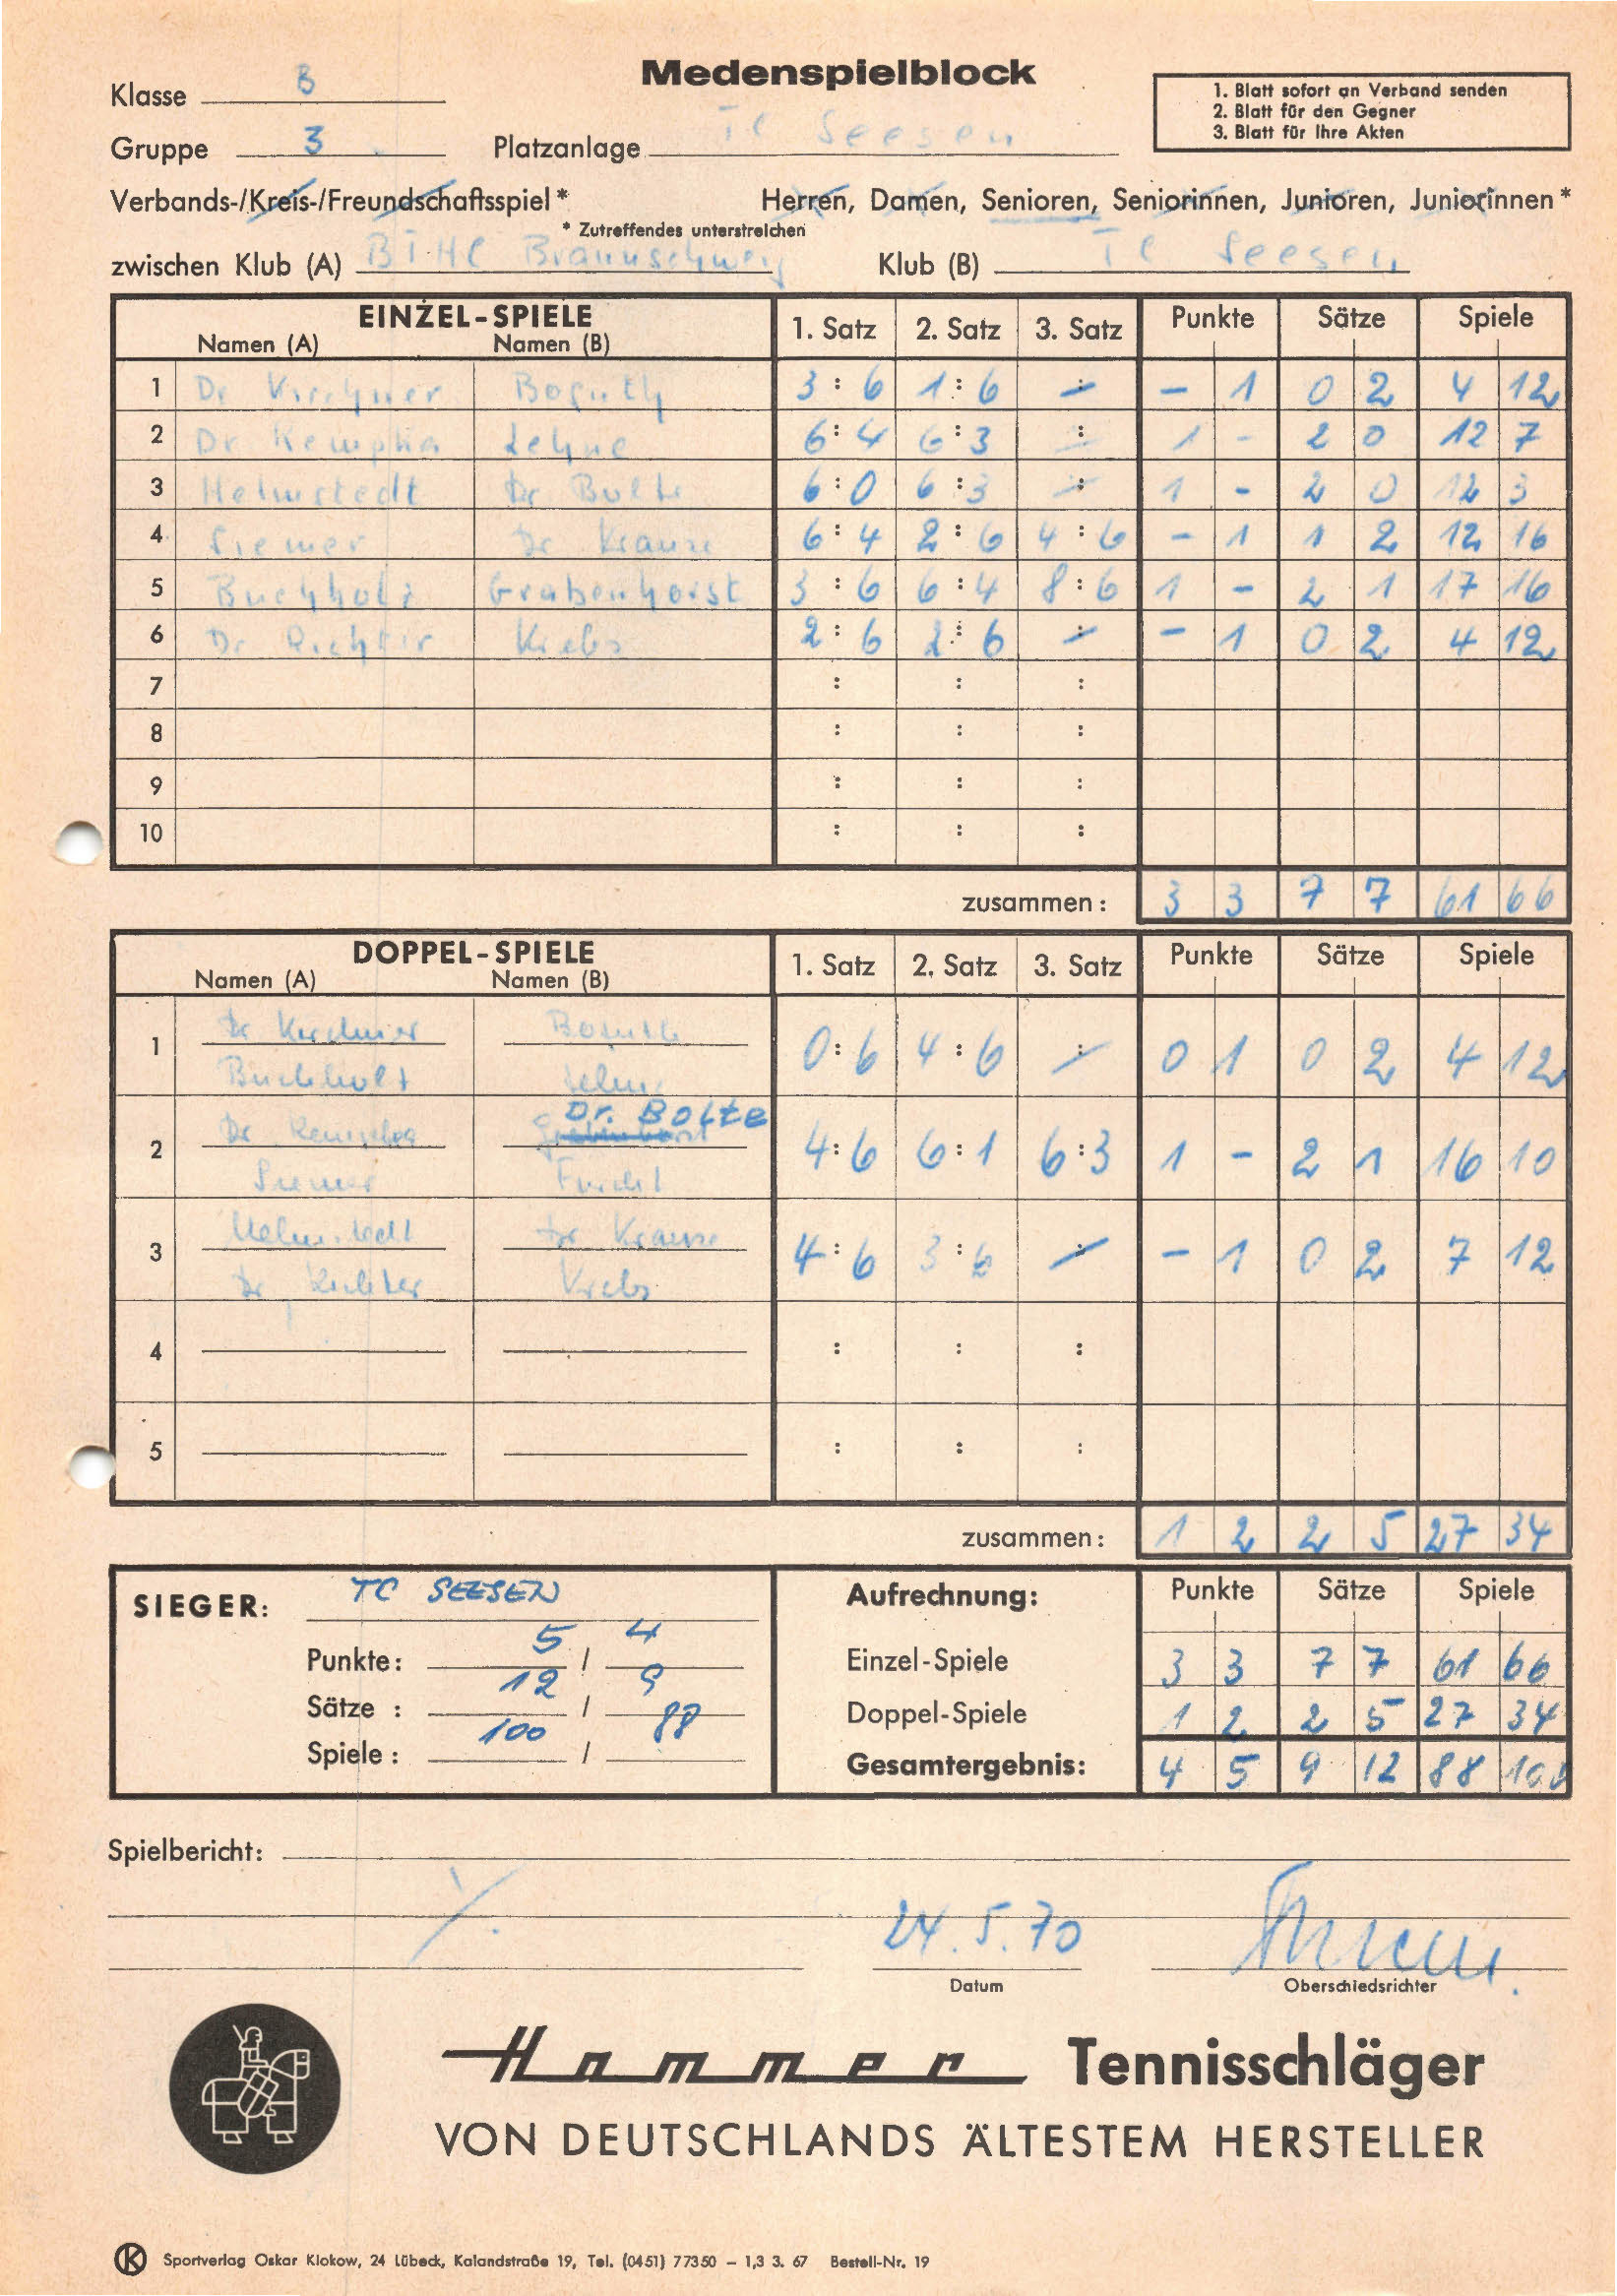 Medenspielblock
Klasse B
1. Blatt sofort an Verband senden
2. Blatt für den Gegner
3. Blatt für Ihre Akten
Gruppe 3 Platzanlage TC Seesen
Verbands-/Kreis-/Freundschaftsspiel* Herren, Damen, Senioren, Seniorinnen, Junioren, Juniorinnen*
* Zutreffendes unterstreichen
zwischen Klub (A) BTHC Braunschweig Klub (B) TC Seesen
EINZEL-SPIELE 1. Satz 2. Satz 3. Satz Punkte Sätze Spiele
Namen (A) Namen (B)
1 Dr Kirchner Boguth 3:6 1:6 – – 1 0 2 4 12
2 Dr Kempka Lehne 6:4 6:3 : – 1 – 2 0 12 7
3 Helmstedt Dr Bolte 6:0 6:3 – 1 – 2 0 12 3
4 Siemer Dr Krause 6:4 2:6 4:6 – 1 1 2 12 16
5 Buchholz Grabenhorst 3:6 6:4 8:6 1 – 2 1 17 16
6 Dr Richter Krebs 2:6 2:6 – – 1 0 2 4 12
7 : : :
8 : : :
9 : : :
10 : : :
zusammen: 3 3 7 7 61 66
DOPPEL-SPIELE 1. Satz 2. Satz 3. Satz Punkte Sätze Spiele
Namen (A) Namen (B)
Dr Kirchner Boguth
1 0:6 4:6 – 0 1 0 2 4 12
Buchholz Lehne
Dr. Bolte
Dr Kempka Grabenhorst
2 4:6 6:1 6:3 1 – 2 1 16 10
Siemer Furcht
Helmstedt Dr Krause
3 4:6 3:6 – – 1 0 2 7 12
Dr Richter Krebs
4 : : :
5 : : :
zusammen: 1 2 2 5 27 34
SIEGER: TC SEESEN Aufrechnung: Punkte Sätze Spiele
Punkte: 5 / 4 Einzel-Spiele 3 3 7 7 61 66
Sätze : 12 / 9 Doppel-Spiele 1 2 2 5 27 34
Spiele: 100 / 88 Gesamtergebnis: 4 5 9 12 88 100
Spielbericht:
24.5.70
Datum Oberschiedsrichter
Hammer Tennisschläger
VON DEUTSCHLANDS ÄLTESTEM HERSTELLER
K Sportverlag Oskar Klokow, 24 Lübeck, Kalandstraße 19, Tel. (0451) 77350 – 1,3 3. 67 Bestell-Nr. 19